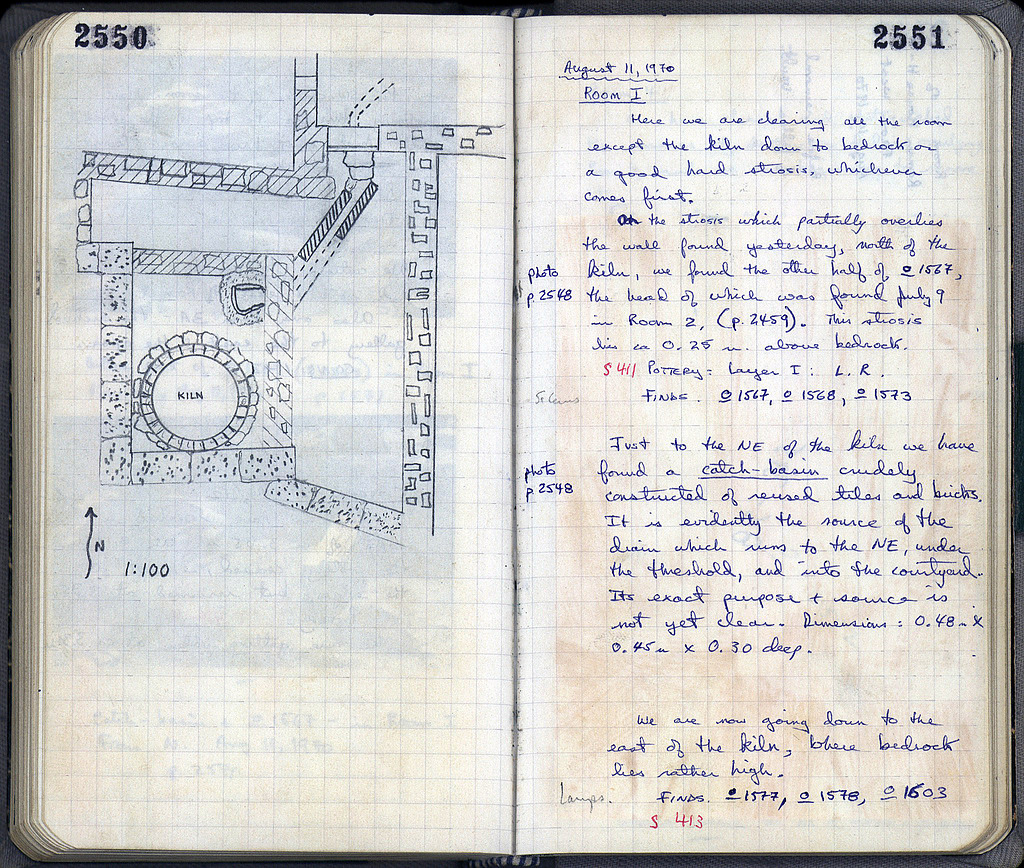 2550
KILN
N
1:100
2551
August 11, 1970
Room I
Here we are clearing all the room
except the kiln down to bedrock or
a good hard strosis, whichever
comes first.
On the strosis which partially overlies
the wall found yesterday, north of the
photo kiln, we found the other half of o 1567,
p. 2548 the head of which was found July 9
in Room 2, (p. 2459). This strosis
lies ca 0.25 m. above bedrock.
S 411 POTTERY: Layer I: L.R.
FINDS. o 1567, o 1568, o 1573
Just to the NE of the kiln we have
photo found a catch-basin crudely
p. 2548 constructed of reused tiles and bricks.
It is evidently the source of the
drain which runs to the NE, under
the threshold, and into the courtyard.
Its exact purpose + source is
not yet clear. Dimensions: 0.48 m X
0.45 m x 0.30 deep.
We are now going down to the
east of the kiln, where bedrock
lies rather high.
Lamps. FINDS. o 1577, o 1578, o 1603
S 413